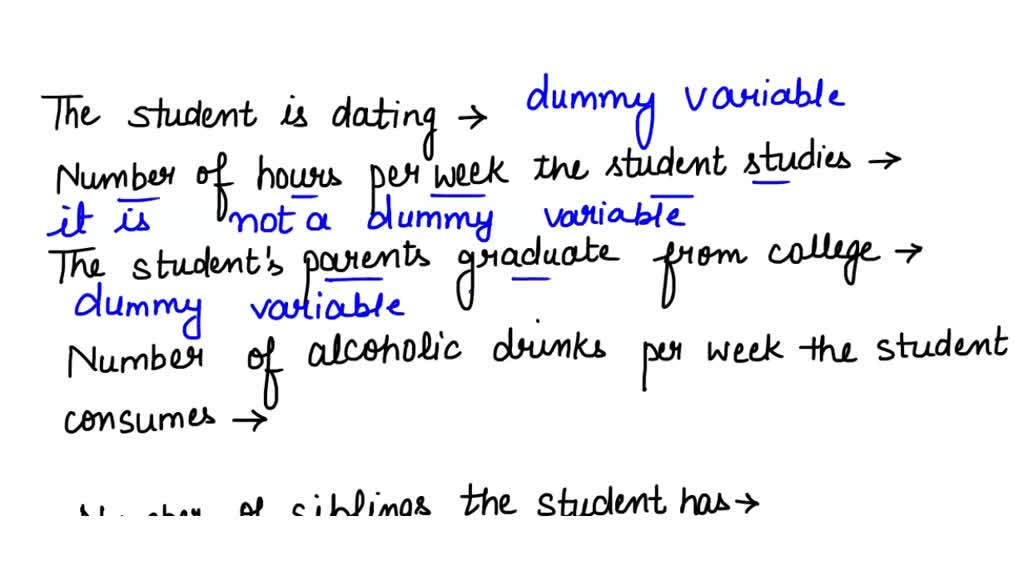 The student is dating → dummy variable
Number of hours per week the student studies →
it is not a dummy variable
The student's parents graduate from college →
dummy variable
Number of alcoholic drinks per week the student
consumes →
Number of siblings the student has →